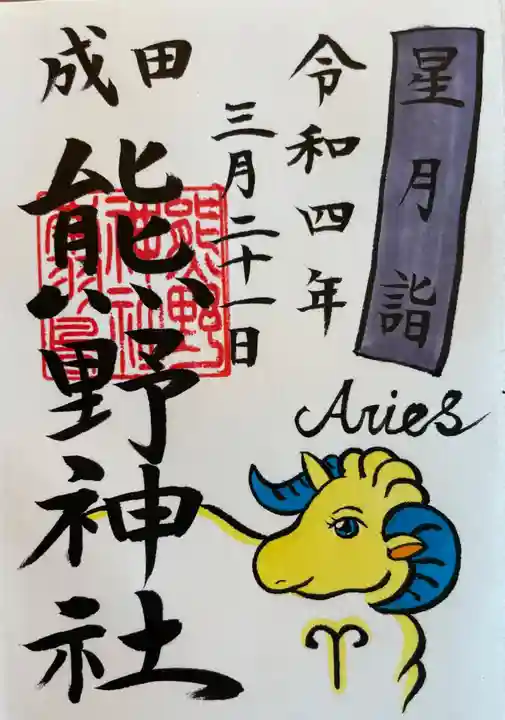 星月詣
令和四年
三月二十一日
成田
熊野神社
Aries
♈